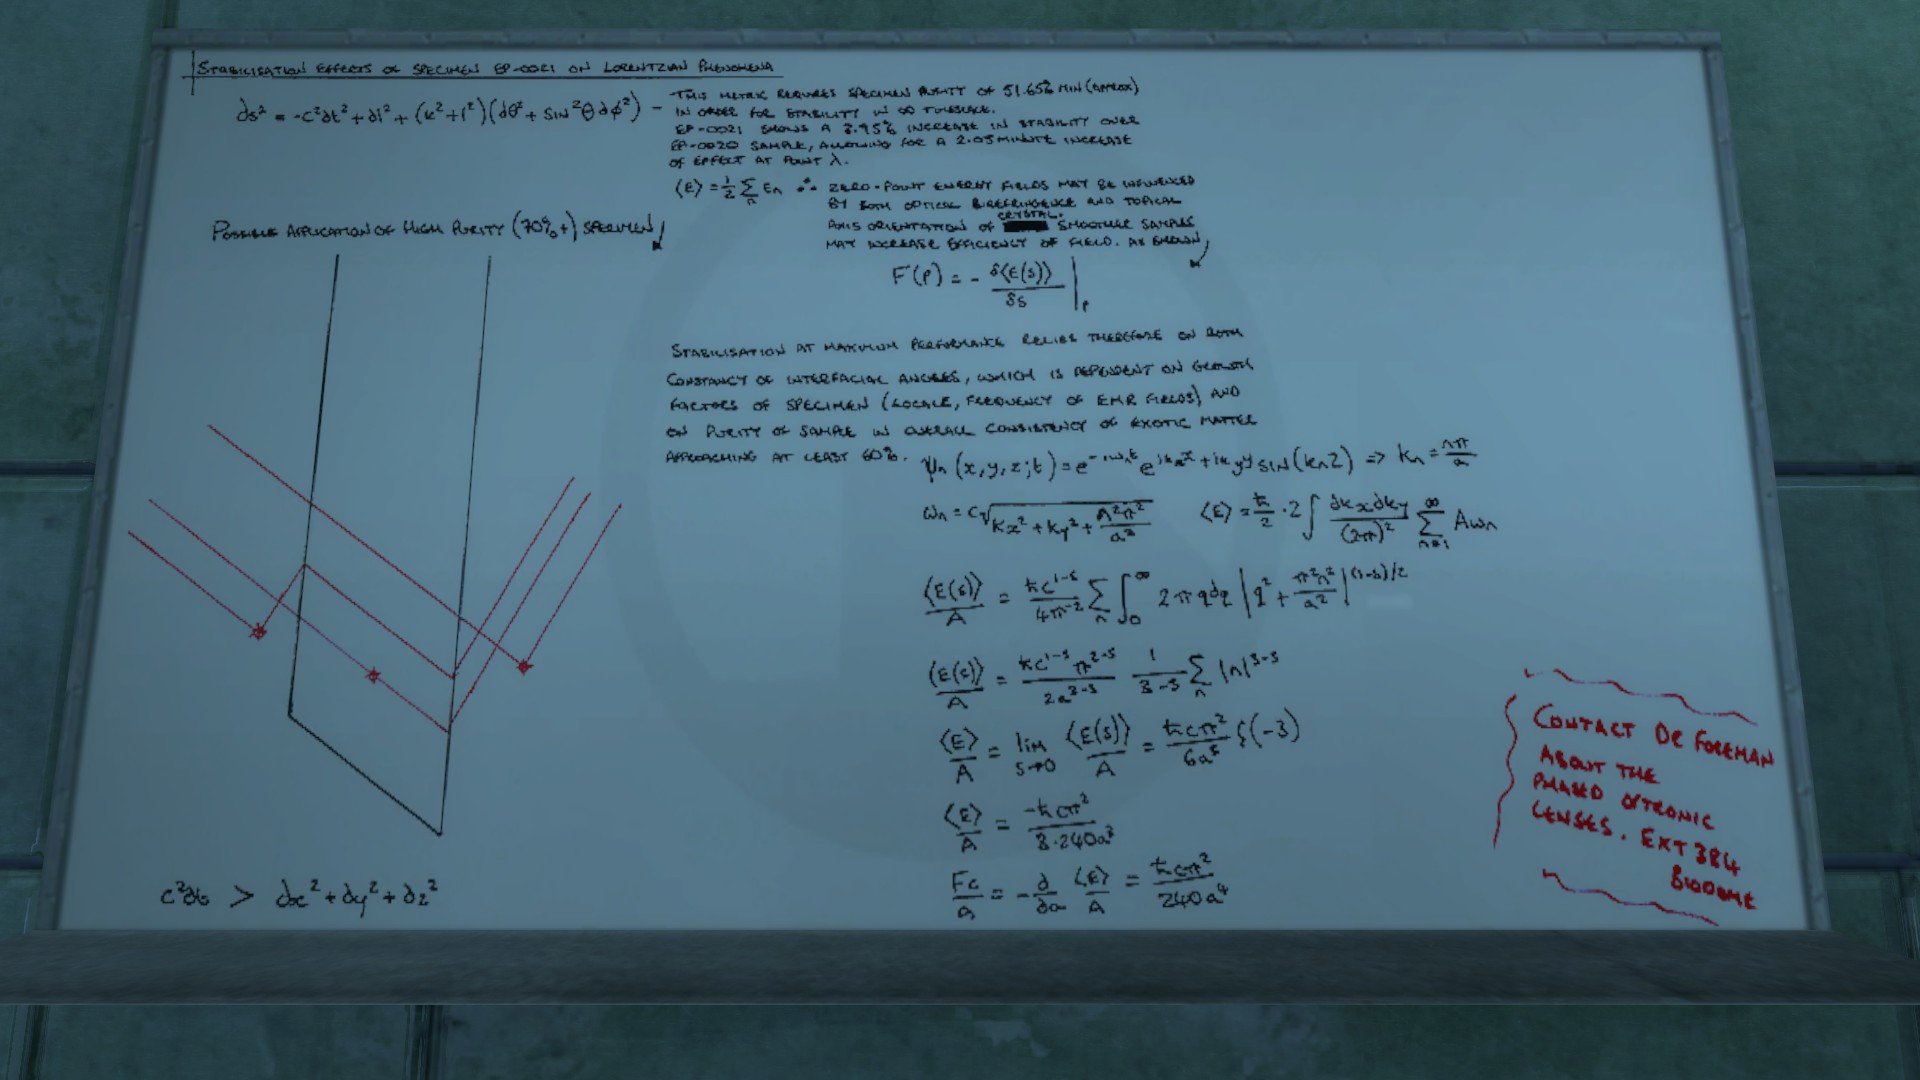 STABILISATION EFFECTS OF SPECIMEN EP-0021 ON LORENTZIAN PHENOMENA
ds² = -c²dt² + dl² + (k² + l²)(dθ² + sin²θdφ²) -
THIS METRIC REQUIRES SPECIMEN PURITY OF 51.65% MIN (APPROX)
IN ORDER FOR STABILITY IN ∞ TOLERANCE.
EP-0021 SHOWS A 3.95% INCREASE IN STABILITY OVER
EP-0020 SAMPLE, ALLOWING FOR A 2.05 MINUTE INCREASE
OF EFFECT AT POINT λ.
⟨E⟩ = 1/2 Σn En ∴ ZERO-POINT ENERGY FIELDS MAY BE INFLUENCED
BY BOTH OPTICAL BIREFRINGENCE AND TOPICAL
CRYSTAL.
AXIS ORIENTATION OF SMOOTHER SAMPLE
MAY INCREASE EFFICIENCY OF FIELD. AS SHOWN
F(p) = - δ⟨E(s)⟩/δs |p
POSSIBLE APPLICATION OF HIGH PURITY (70%+) SPECIMEN
STABILISATION AT MAXIMUM PERFORMANCE RELIES THEREFORE ON BOTH
CONSTANCY OF INTERFACIAL ANGLES, WHICH IS DEPENDENT ON GROWTH
FACTORS OF SPECIMEN (LOCALE, FREQUENCY OF EMR FIELDS) AND
ON PURITY OF SAMPLE IN OVERALL CONSISTENCY OF EXOTIC MATTER
APPROACHING AT LEAST 60%.
ψn(x,y,z;t) = e^-iωnt e^ikxx+ikyy sin(knz) => kn = nπ/a
ωn = c√(kx² + ky² + n²π²/a²)
⟨E⟩ = ħ/2 · 2∫ dkxdky/(2π)² Σn=1^∞ Aωn
⟨E(s)⟩/A = ħc^1-s/4π² Σn ∫0^∞ 2πqdq |q² + π²n²/a²|^(1-s)/2
⟨E(s)⟩/A = ħc^1-s π^2-s/2a^3-s 1/3-s Σn |n|^3-s
⟨E⟩/A = lim s→0 ⟨E(s)⟩/A = ħcπ²/6a³ ζ(-3)
⟨E⟩/A = -ħcπ²/3·240a³
Fc/A = - d/da ⟨E⟩/A = ħcπ²/240a⁴
c²dt > dx² + dy² + dz²
CONTACT DR FOREMAN
ABOUT THE
PHASED OPTRONIC
LENSES. EXT 384
BIODOME